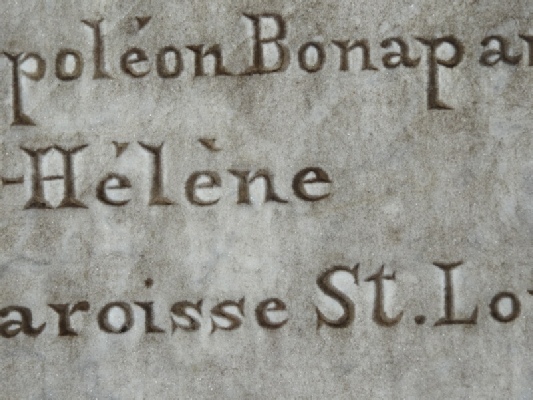 poléon Bonapar
-Hélène
aroisse St. Lo